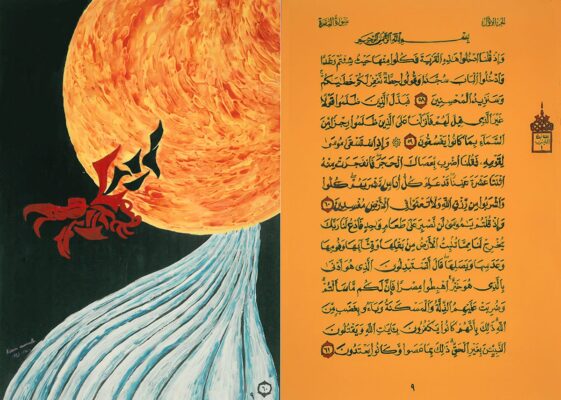 سورة البقرة
الجزء الأول
بسم الله الرحمن الرحيم
وَإِذْ قُلْنَا ادْخُلُوا هَٰذِهِ الْقَرْيَةَ فَكُلُوا مِنْهَا حَيْثُ شِئْتُمْ رَغَدًا
وَادْخُلُوا الْبَابَ سُجَّدًا وَقُولُوا حِطَّةٌ نَغْفِرْ لَكُمْ خَطَٰيَٰكُمْ
وَسَنَزِيدُ الْمُحْسِنِينَ ٥٨ فَبَدَّلَ الَّذِينَ ظَلَمُوا قَوْلًا
غَيْرَ الَّذِي قِيلَ لَهُمْ فَأَنْزَلْنَا عَلَى الَّذِينَ ظَلَمُوا رِجْزًا مِنَ
السَّمَاءِ بِمَا كَانُوا يَفْسُقُونَ ٥٩ وَإِذِ اسْتَسْقَىٰ مُوسَىٰ
لِقَوْمِهِ فَقُلْنَا اضْرِبْ بِعَصَاكَ الْحَجَرَ فَانْفَجَرَتْ مِنْهُ
اثْنَتَا عَشْرَةَ عَيْنًا قَدْ عَلِمَ كُلُّ أُنَاسٍ مَشْرَبَهُمْ كُلُوا
وَاشْرَبُوا مِنْ رِزْقِ اللَّهِ وَلَا تَعْثَوْا فِي الْأَرْضِ مُفْسِدِينَ ٦٠
وَإِذْ قُلْتُمْ يَٰمُوسَىٰ لَنْ نَصْبِرَ عَلَىٰ طَعَامٍ وَاحِدٍ فَادْعُ لَنَا رَبَّكَ
يُخْرِجْ لَنَا مِمَّا تُنْبِتُ الْأَرْضُ مِنْ بَقْلِهَا وَقِثَّائِهَا وَفُومِهَا
وَعَدَسِهَا وَبَصَلِهَا قَالَ أَتَسْتَبْدِلُونَ الَّذِي هُوَ أَدْنَىٰ
بِالَّذِي هُوَ خَيْرٌ اهْبِطُوا مِصْرًا فَإِنَّ لَكُمْ مَا سَأَلْتُمْ
وَضُرِبَتْ عَلَيْهِمُ الذِّلَّةُ وَالْمَسْكَنَةُ وَبَاءُو بِغَضَبٍ مِنَ
اللَّهِ ذَٰلِكَ بِأَنَّهُمْ كَانُوا يَكْفُرُونَ بِـَٔايَٰتِ اللَّهِ وَيَقْتُلُونَ
النَّبِيِّينَ بِغَيْرِ الْحَقِّ ذَٰلِكَ بِمَا عَصَوْا وَكَانُوا يَعْتَدُونَ ٦١
٩
٦٠